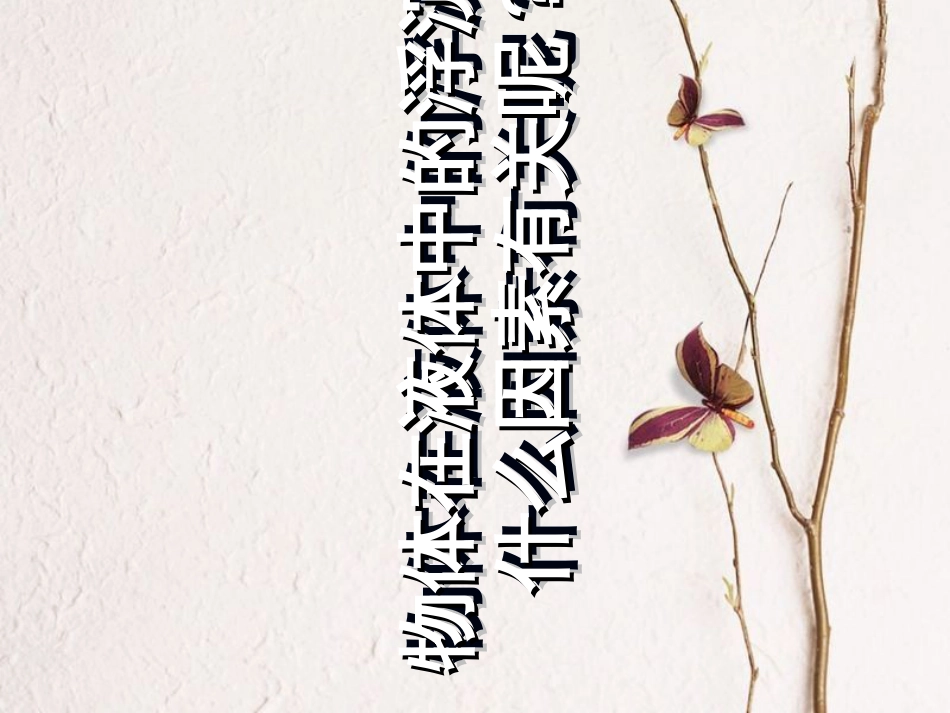 物体在液体中的浮沉
什么因素有关呢？